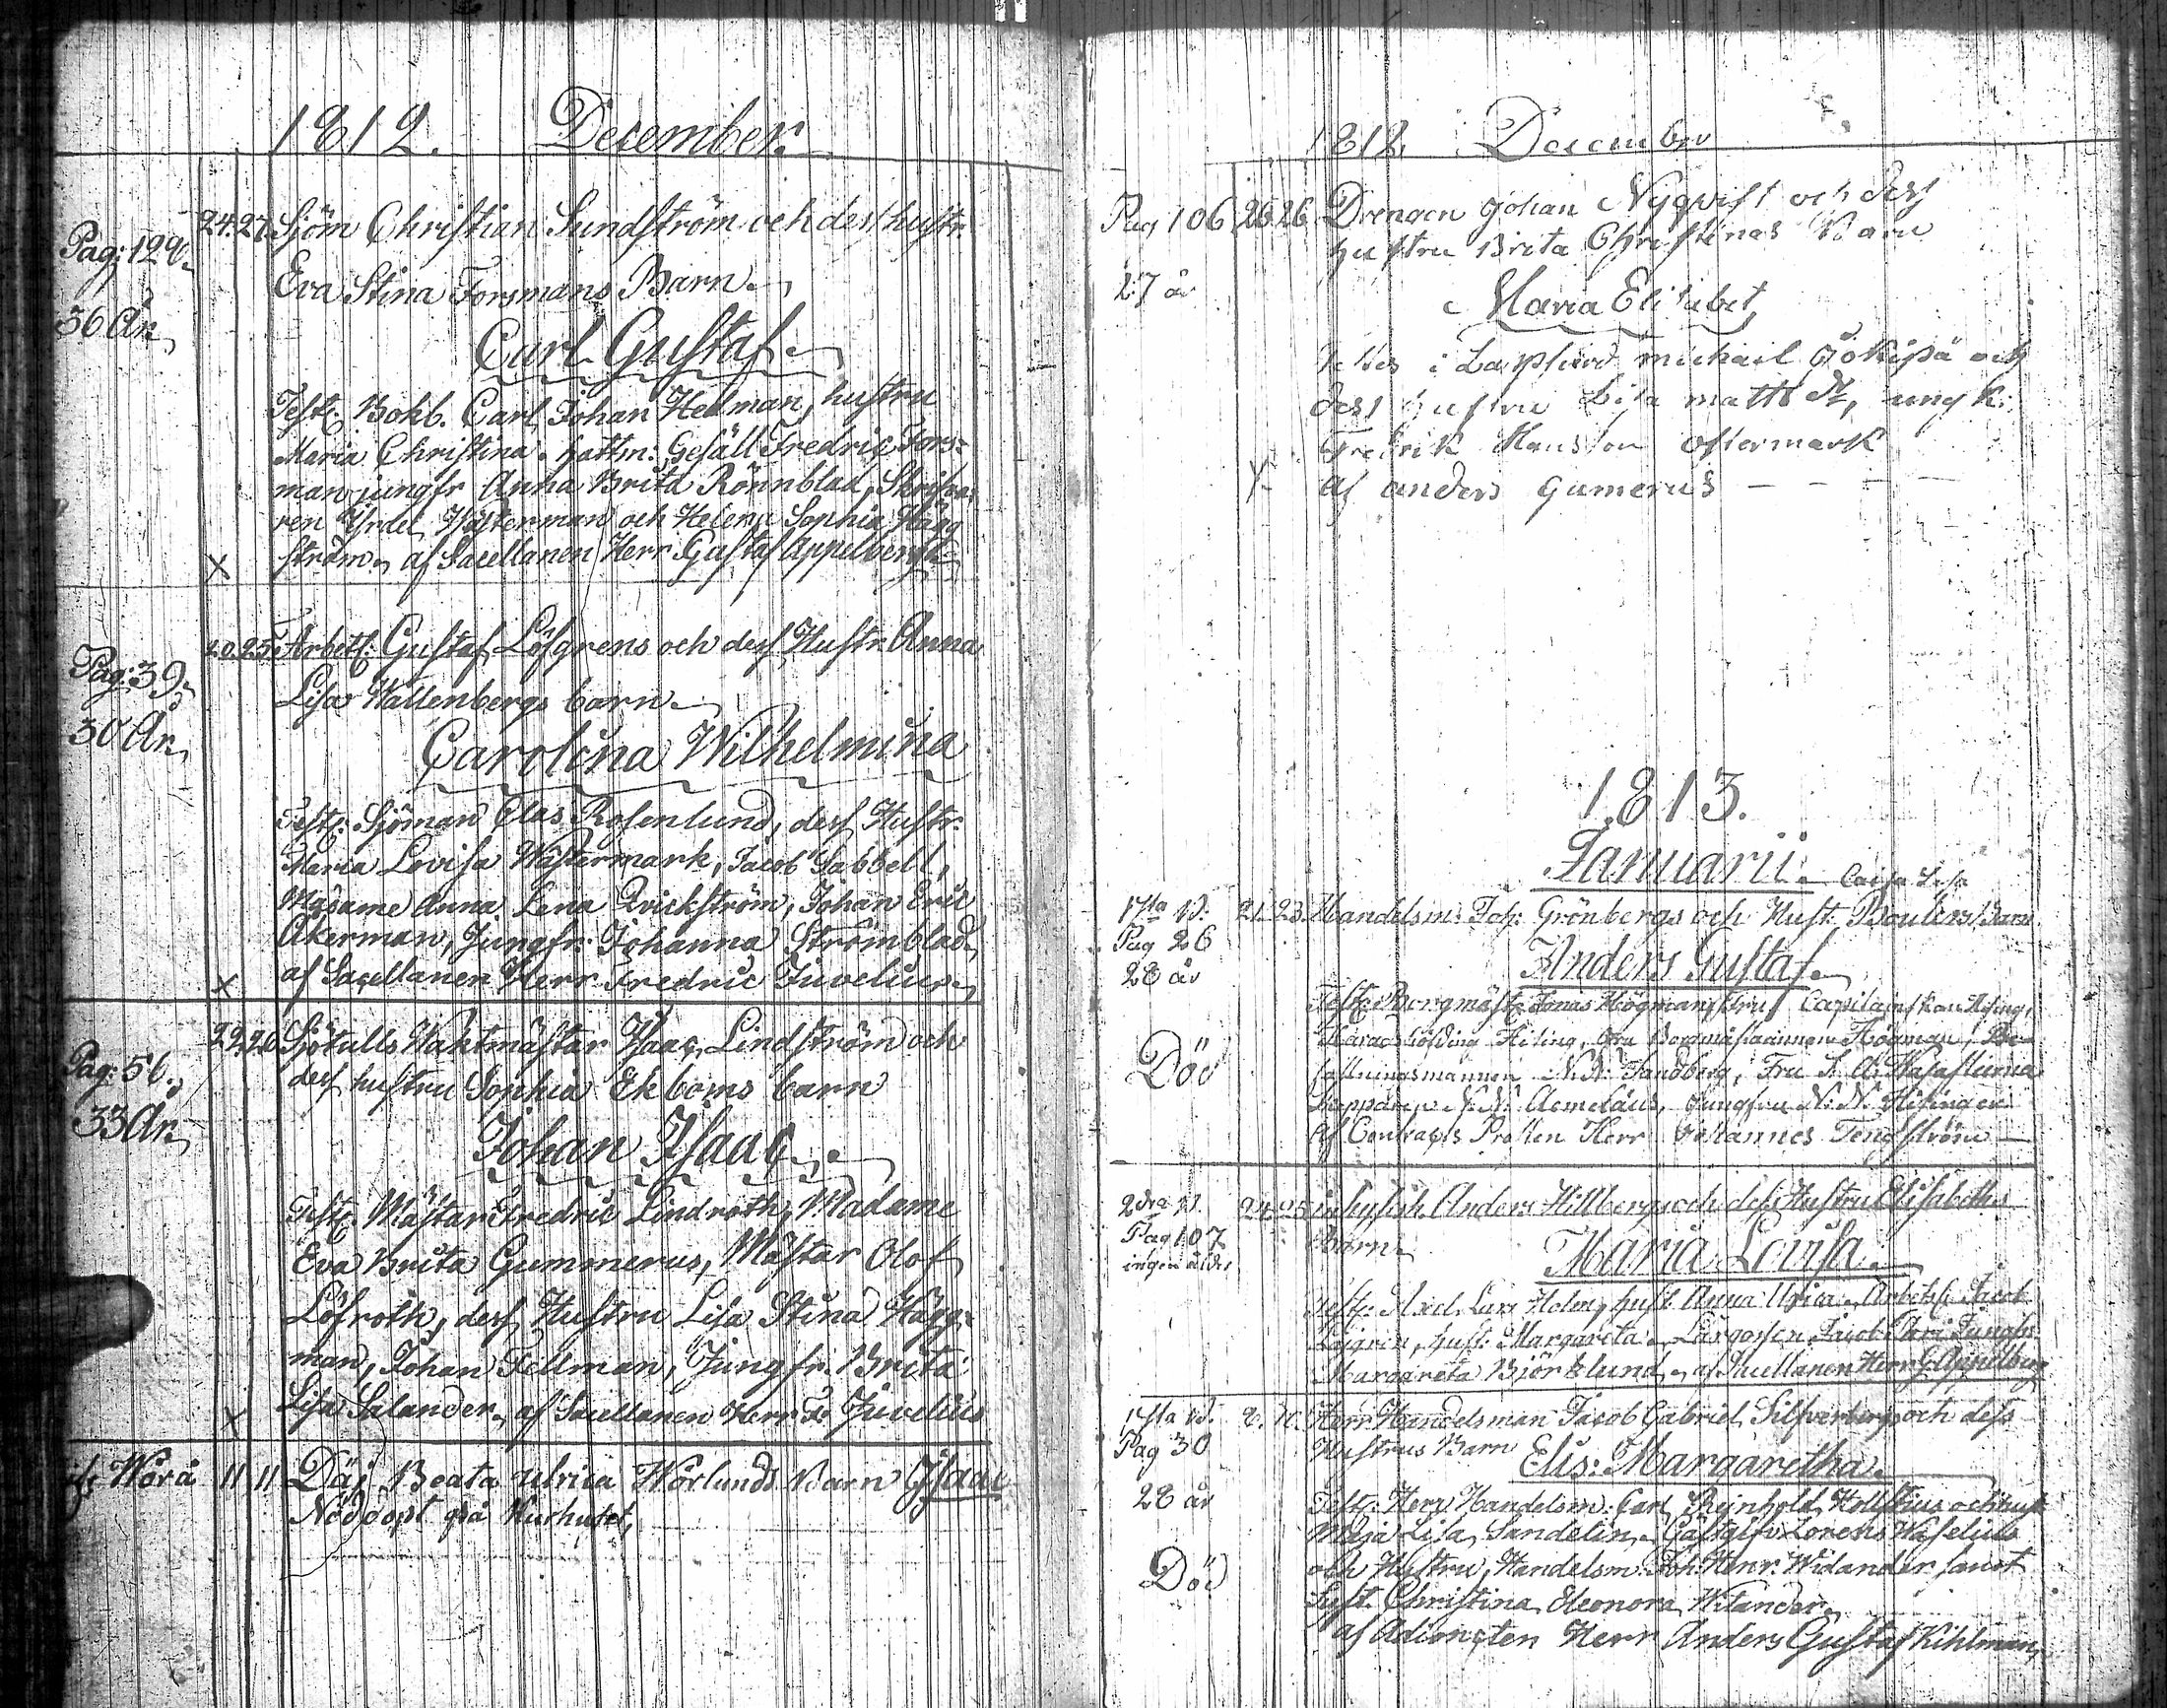 1812. December.
Pag: 129.
36 År
24. 27. Sjöm Christian Sundström och dess hustr.
Eva Stina Forsmans Barn.
Carl Gustaf.
Test: Bokb. Carl Johan Hedman, hustru
Maria Christina. Hattm: Gesäll Fredric Fors=
man jungfr Anna Brita Rönnblad, Skrifva
ren Isrdel Wästerman och Helena Sophia Hägg
ström. af Sacellanen Herr Gustaf Appelberg
X
Pag: 39.
30 År.
20. 25. Arbetsk: Gustaf Löfgrens och dess Hustr. Anna
Lisa Wallenbergs barn.
Carolina Wilhelmina
Test: Sjöman Clas Rosenlund, dess Hustr.
Maria Lovisa Wästermark, Jacob Sabbell,
Madame Anna Lena Qvickström, Johan Eric
Åkerman, Jungfr: Johanna Strömblad
af Sacellanen Herr Fredric Juvelius.
X
Pag: 56.
33 År.
22. 26. Sjötulls Waktmästar Isaac Lindström och
dess hustru Sophia Ekboms barn
Johan Isaac.
Test: Mästar Fredric Lindroth, Madame
Eva Brita Gummerus, Mästar Olof
Löfroth, dess Hustru Lisa Stina Hägg=
man, Johan Fellman, Jungfr. Brita
Lisa Salander, af Sacellanen Herr F. Juvelius
X
Wörå 11 11 Däj Beata Ulrica Wörlunds Barn Isaac
Nöddöpt på Kurhuset,
1812. December
Pag 106 26 26 Drengen Johan Nyqvist och dess
hustru Brita Christinas Barn
27 år
Maria Elisabet
i Lappfierd michail Jokipä och
dess hustru Lisa matts dr, ung k:
Fredrik Hansson Östermark
X af anders Gumerus - - - -
1813.
Januarii.
Caisa Lisa
1sta R. 21. 23. Handelsm: Joh: Grönbergs och Hust. Boulers Barn
Pag 26
28 år
Anders Gustaf.
Test: Borgmäst: Jonas Högman, Fru Capitainskan Hising,
Häradshöfding Hising, Fru Borgmästarinnan Högman, Be=
fallningsmannen N.N. Sandberg, Fru
Död
N.N. Aemelæus, Jungfru N.N. Hisinger
af Contracts Prosten Herr Johannes Tengström
2dra R. 24. 25 inhysish. Anders Hillbergs och dess Hustru Elisabeths
Pag 107
ingen ålder
Barn
Maria Lovisa.
Test: Lars Holm, hust. Anna Ulrica. Arbetsk. Jacob
hust: Margareta. Jacob Jungfr.
Margareta Björklund. af Sacellanen Herr G. Appelberg
1sta R. 8. 10. Herr Handelsman Jacob Gabriel Silfverbergs och dess
Pag 30
Hustrus Barn
Elis: Margaretha.
28 år
Test: Herr Handelsm: Carl Reinhold Hollstius och hust
Maja Lisa Sandelin. Gästgifv: Lorens Waselius
Död
och Hustru, Handelsm: Joh: Henr: Widander samt
Christina Eleonora Witander.
af Adiuncten Herr Anders Gustaf Kihlman,